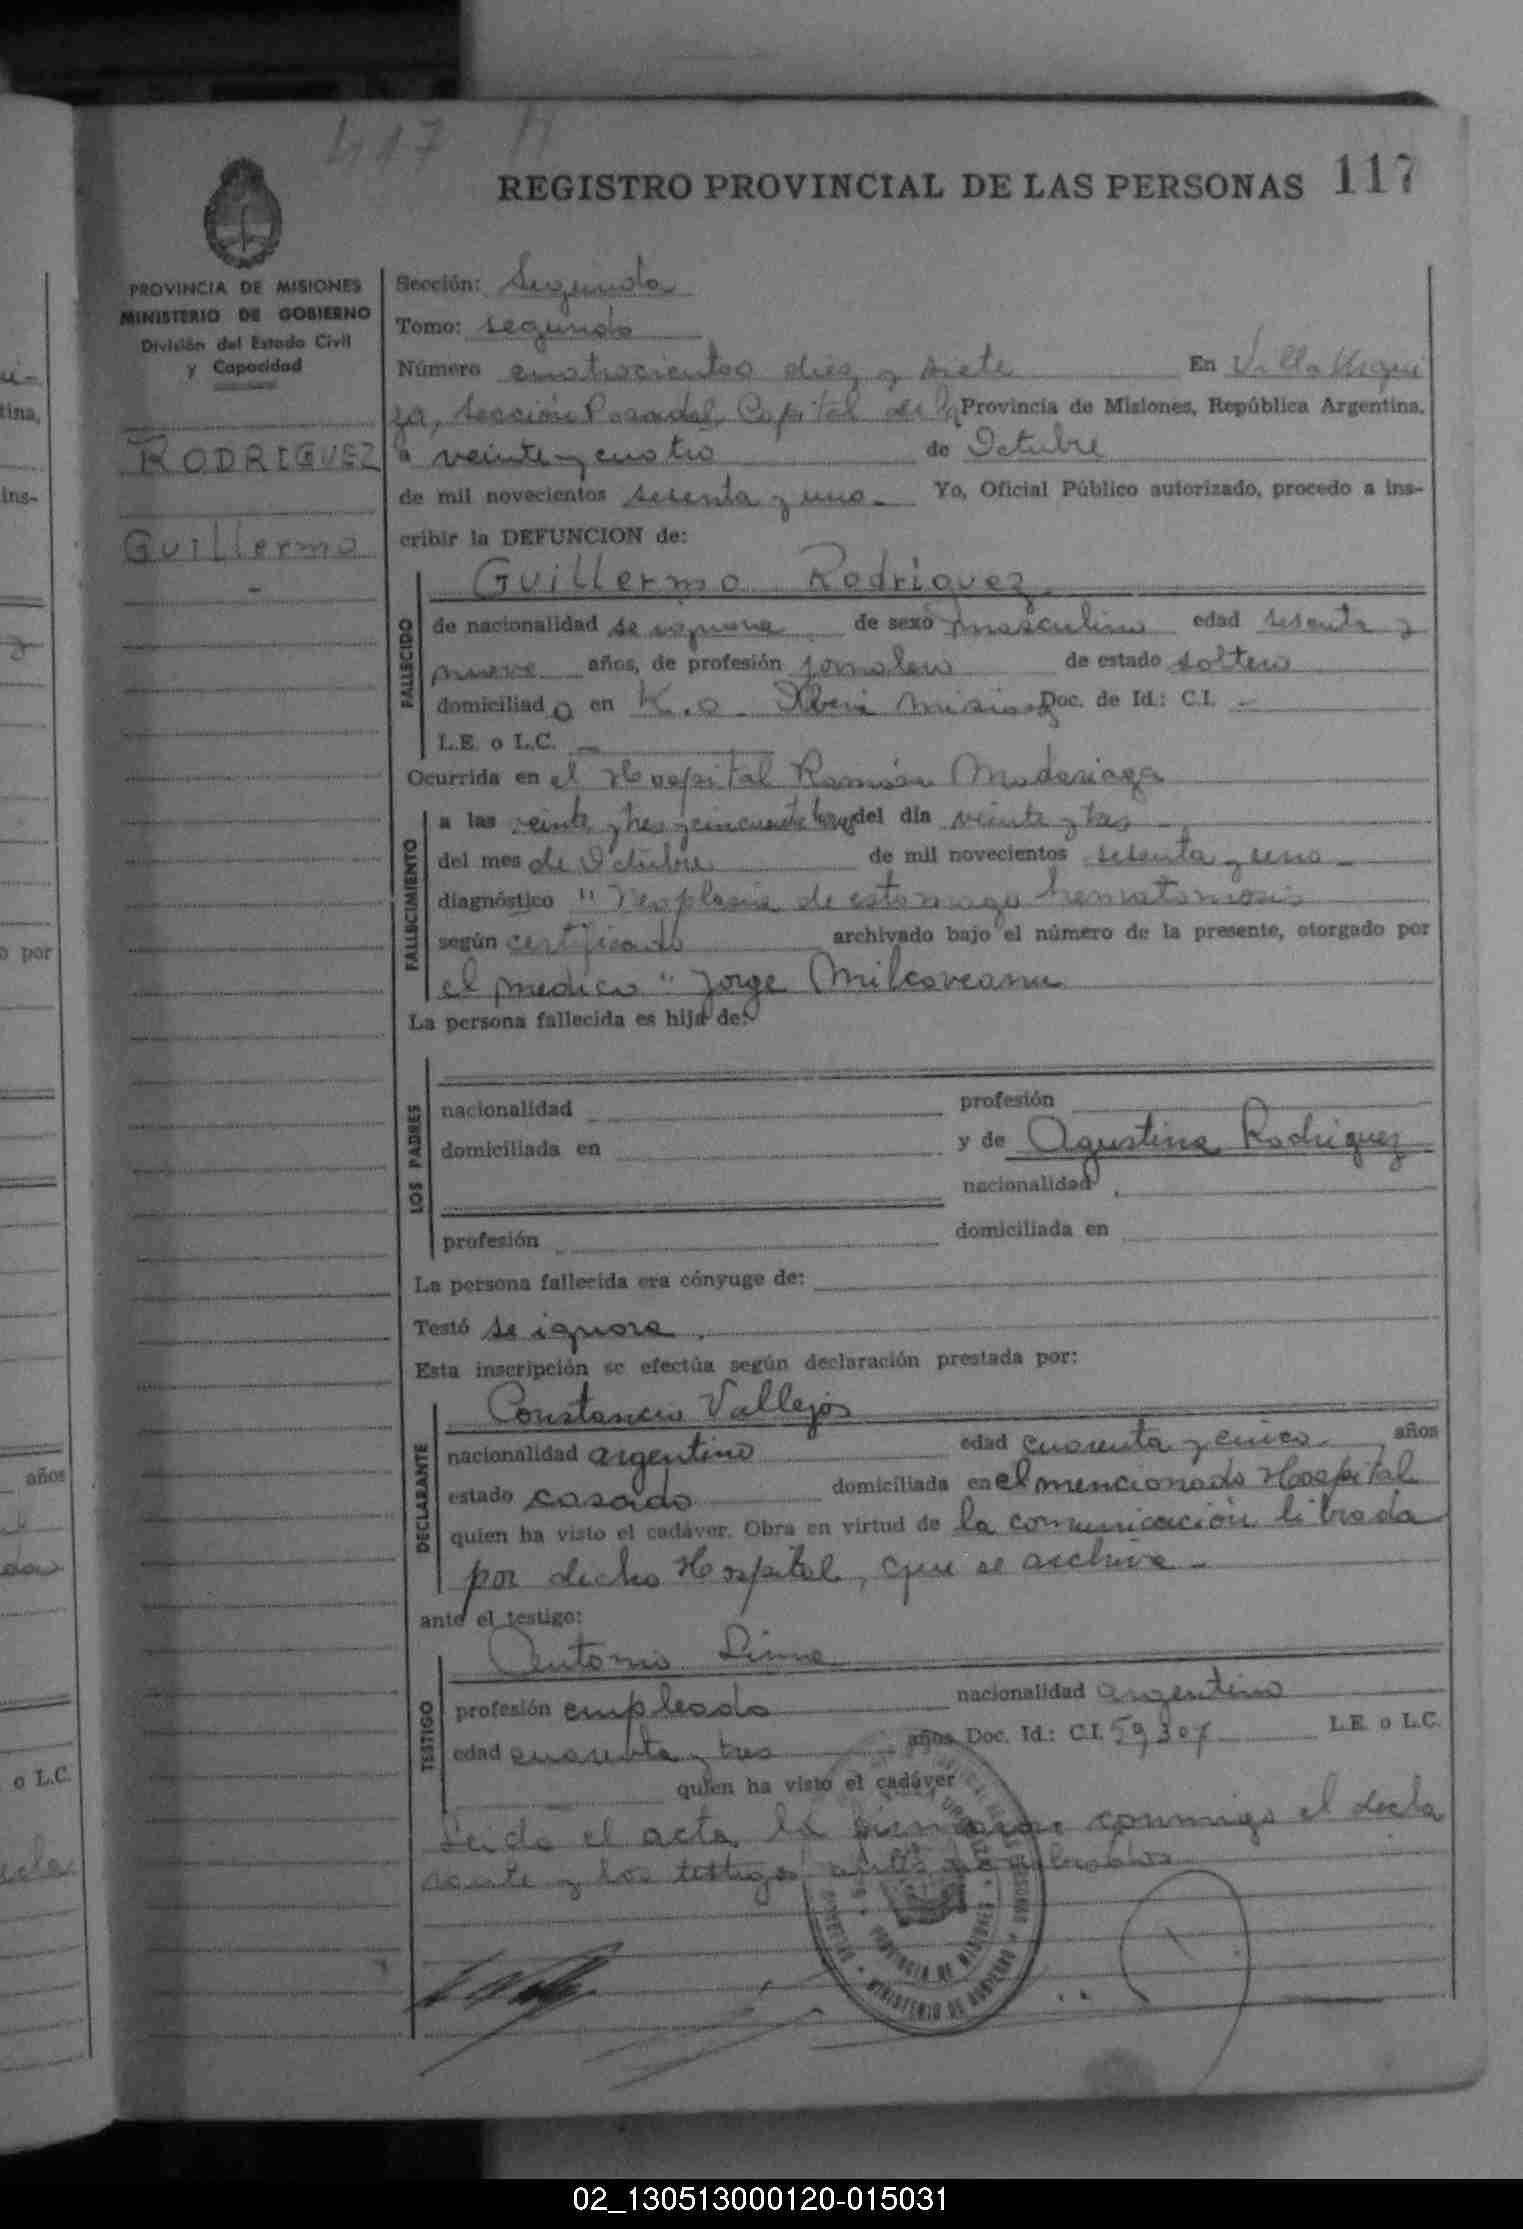 417
REGISTRO PROVINCIAL DE LAS PERSONAS 117
PROVINCIA DE MISIONES
MINISTERIO DE GOBIERNO
División del Estado Civil
y Capacidad
RODRIGUEZ
Guillermo
-
Sección: Segunda
Tomo: segundo
Número cuatrocientos diez y siete En Villa Urqui
za, Sección Posadas, Capital de la Provincia de Misiones, República Argentina,
a veinte y cuatro de Octubre
de mil novecientos sesenta y uno - Yo, Oficial Público autorizado, procedo a ins-
cribir la DEFUNCION de:
Guillermo Rodriguez
FALLECIDO
de nacionalidad se ignora de sexo masculino edad sesenta y
nueve años, de profesión jornalero de estado soltero
domiciliado en Misiones Doc. de Id.: C.I. -
L.E. o L.C. -
Ocurrida en el Hospital Ramón Madariaga
FALLECIMIENTO
a las veinte y tres y cincuenta horas del día veinte y tres
del mes de Octubre de mil novecientos sesenta y uno -
diagnóstico " Neoplasia de estomago hematomosis
según certificado archivado bajo el número de la presente, otorgado por
el medico " Jorge Milcoveanu
La persona fallecida es hijo de:
LOS PADRES
nacionalidad profesión
domiciliada en y de Agustina Rodriguez
nacionalidad
profesión domiciliada en
La persona fallecida era cónyuge de:
Testó se ignora .
Esta inscripción se efectúa según declaración prestada por:
Constancio Vallejos
DECLARANTE
nacionalidad argentino edad cuarenta y cinco años
estado casado domiciliada en el mencionado Hospital
quien ha visto el cadáver. Obra en virtud de la comunicación librada
por dicho Hospital, que se archiva -
ante el testigo:
Antonio
TESTIGO
profesión empleado nacionalidad argentino
edad cuarenta y tres años Doc. Id.: C.I. 59307 L.E. o L.C.
quien ha visto el cadáver
Leida el acta, la firmaron conmigo el decla
rante y los testigos
PROVINCIA DE MISIONES
MINISTERIO DE GOBIERNO
02_130513000120-015031